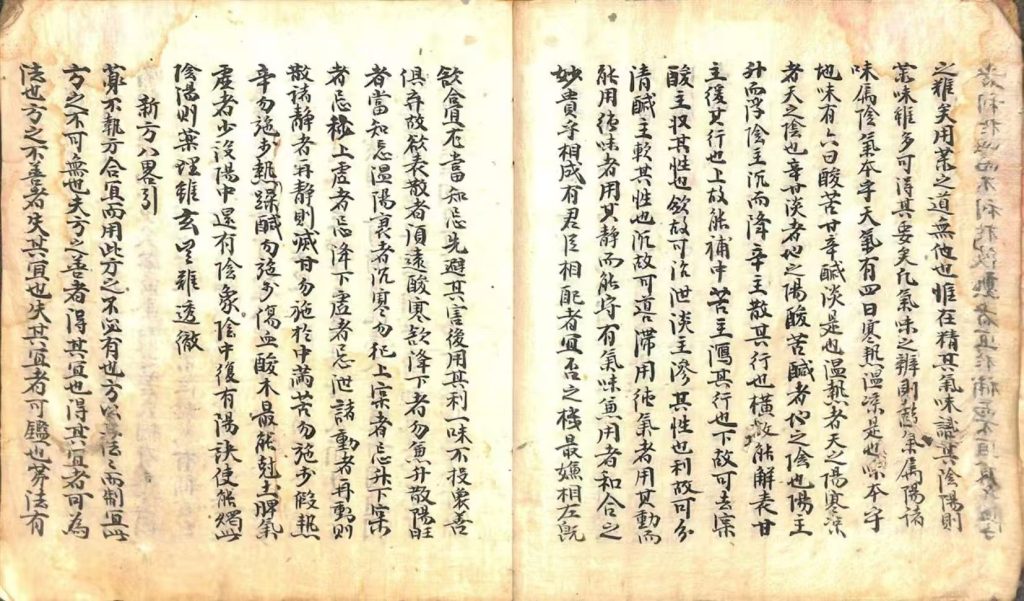 之難矣用藥之道無他也惟在精其氣味識其陰陽則
藥味雖多可得其要矣凡氣味之辨則諸氣属陽諸
味属陰氣本乎天氣有四曰寒熱温凉是也味本乎
地味有六曰酸苦甘辛鹹淡是也温熱者天之陽寒凉
者天之陰也辛甘淡者地之陽酸苦鹹者地之陰也陽主
升而浮陰主沉而降辛主散其行也横故能解表甘
主緩其行也上故能補中苦主瀉其行也下故可去实
酸主収其性也斂故可治泄淡主滲其性也利故可分
清鹹主軟其性也沉故可導滯用純氣者用其動而
能用純味者用其静而能守有氣味兼用者和合之
妙貴乎相成有君臣相配者宜否之機最嫌相左既
欽合宜尤當知忌先避其害後用其利一味不投衆善
俱弃故欲表散者須遠酸寒欲降下者勿兼升散陽旺
者當知忌温陽衰者沉寒勿犯上実者忌升下実
者忌秘上虚者忌降下虚者忌泄諸動者再動則
散諸静者再静則滅甘勿施於中滿苦勿施於假熱
辛勿施於熱躁鹹勿施於傷血酸木最能剋土脾氣
虚者少設陽中還有陰象陰中復有陽訣使能燭此
陰陽則藥理雖玄豈難透徹
新方八畧引
藥不執方合宜而用此方之不必有也方以立法法而制宜此
方之不可無也夫方之善者得其宜也得其宜者可為
法也方之不善者失其宜也失其宜者可鑑也第法有